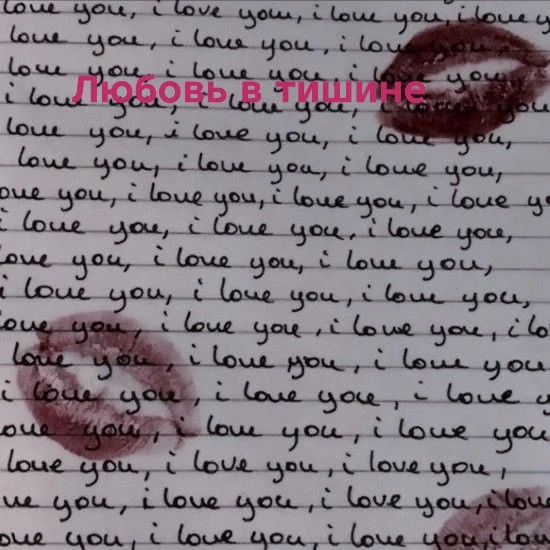 love you, i love you, i love you, i love y
love you, i love you, i love you,
love you, i love you, i love you,
Любовь в тишине
i love you, i love you, i love you
love you, i love you, i love you,
love you, i love you, i love you,
ove you, i love you, i love you, i love yo
i love you, i love you, i love you,
love you, i love you, i love you,
i love you, i love you, i love you,
love you, i love you, i love you, i lo
love you, i love you, i love you
i love you, i love you, i love y
ove you, i love you, i love you
love you, i love you, i love you,
ve you, i love you, i love you, i love
ove you, i love you, i love you, i lov